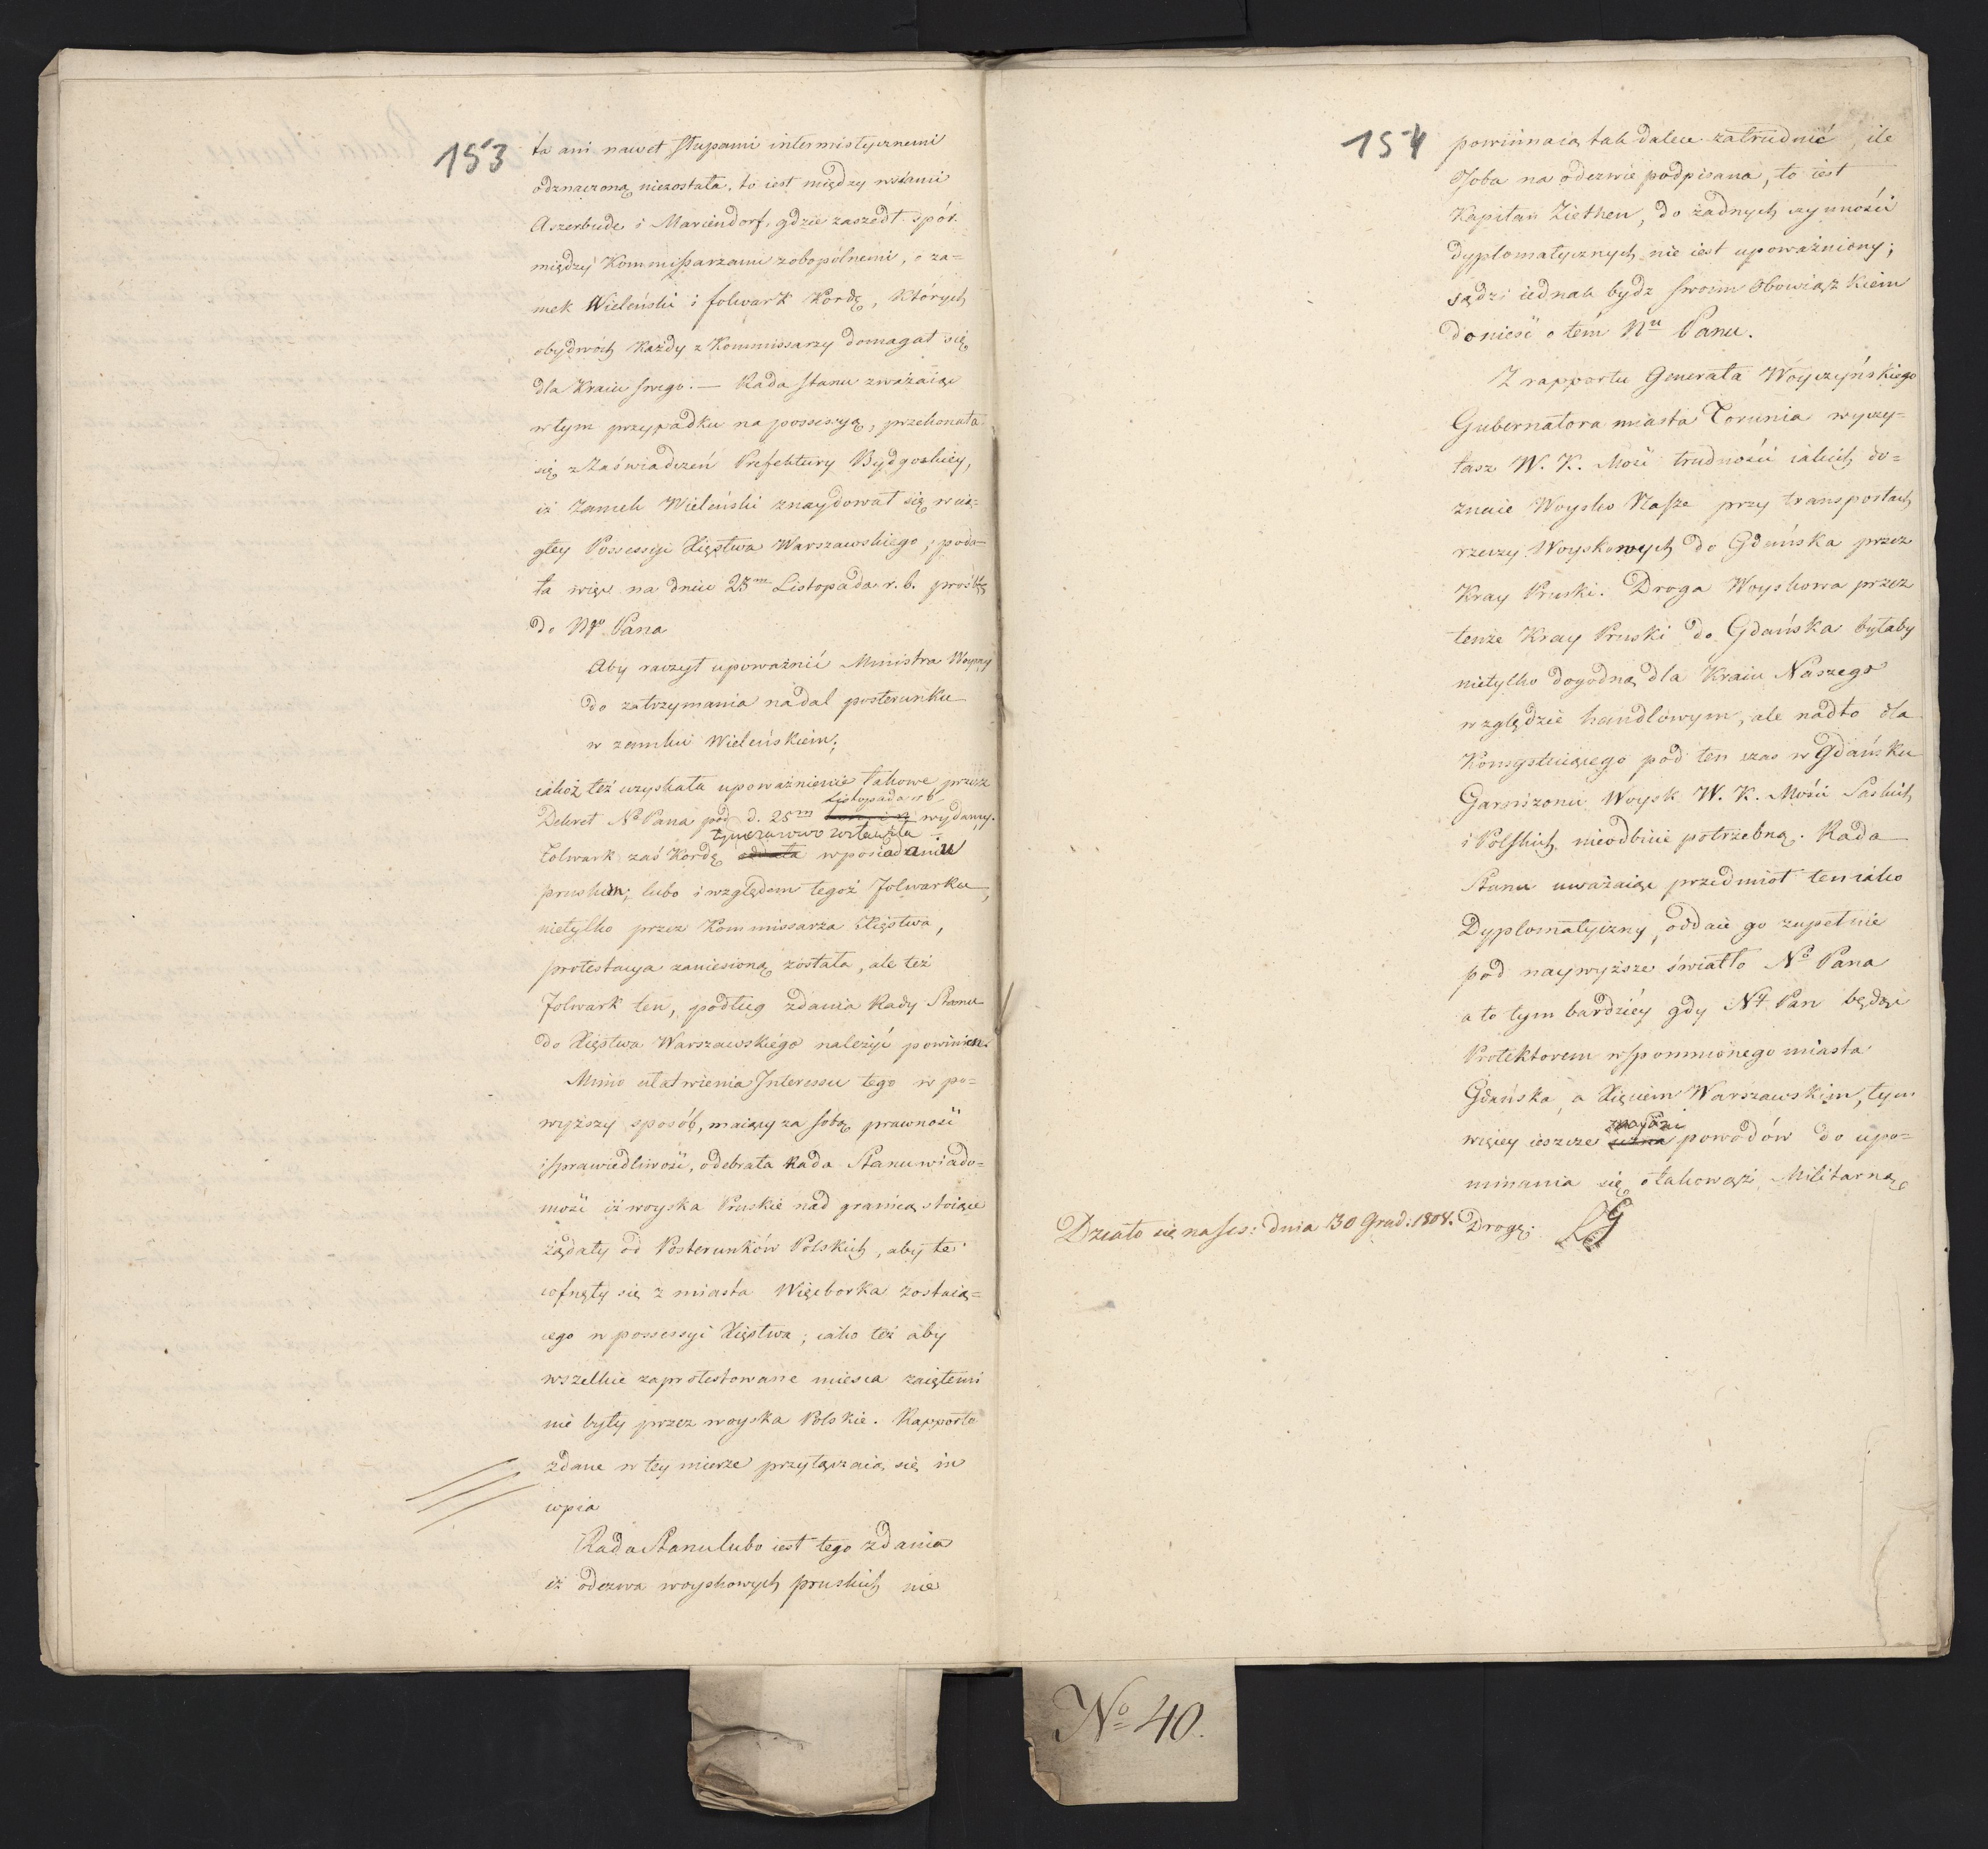 153
ta ani nawet słupami intermistycznemi
odznaczoną niezostała, to iest między wsiami
Aszerbude i Mariendorf, gdzie zaszedł spór
między Kommissarzami zobopólnemi, o za=
mek Wieleński i folwark Kordę, których
obydwóch każdy z Kommissarzy domagał się
dla Kraiu swego. — Rada Stanu zważaiąc
w tym przypadku na possessyą, przekonała
się z Zaświadczeń Prefektury Bydgoskiey,
iż Zamek Wieleński znaydował się w cią=
głey Possessyi Xięstwa Warszawskiego; poda=
ła więc na dniu 25m Listopada r. b. prośbę
do Ngo Pana
Aby raczył upoważnić Ministra Woyny
do zatrzymania nadal posterunku
w zamku Wieleńskiem;
iakoż też uzyskała upoważnienie takowe przez
Listopada r b
Dekret No Pana pod d. 25m wydany.
tymczasowo zostawiła
Folwark zaś Kordę oddała w posiadaniu
pruskim; lubo i względem tegoż Folwarku,
nietylko przez Kommissarza Xięstwa,
protestacya zaniesioną została, ale też
Folwark ten, podług zdania Rady Stanu
do Xięstwa Warszawskiego należyć powinien.
Mimo ułatwienia Interessu tego w po=
wyższy sposób, maiący za sobą prawność
i sprawiedliwość, odebrała Rada Stanu wiado=
mość iż woyska Pruskie nad granicą stoiące
żądały od Posterunków Polskich, aby te
cofnęły się z miasta Więcborka zostaią=
cego w possessyi Xięstwa; iako też aby
wszelkie zaprotestowane mieysca zaiętemi
nie były przez woyska Polskie. Rapporta
zdane w tey mierze przyłączaią się in
copia
Rada Stanu lubo iest tego zdania
iż odezwa woyskowych pruskich nie
154
powinna ią tak dalece zatrudnić, ile
Osoba na odezwie podpisana, to iest
Kapitan Ziethen, do żadnych czynności
dyplomatycznych nie iest upoważniony;
sądzi iednak bydz swoim Obowiązkiem
donieść o tém Nu Panu.
Z rapportu Generała Woyczyńskiego
Gubernatora miasta Torunia wyczy=
tasz W. K. Mość trudności iakich do=
znaie Woysko Nasze przy transportach
rzeczy Woyskowych do Gdańska przez
Kray Pruski. Droga Woyskowa przez
tenże Kray Pruski do Gdańska byłaby
nietylko dogodną dla Kraiu Naszego
względzie handlowym, ale nadto dla
Konsystuiącego pod ten czas w Gdańsku
Garnizonu Woysk W. K. Mości Saskich
i Polskich nieodbicie potrzebną. Rada
Stanu uważaiąc przedmiot ten iako
Dyplomatyczny, oddaie go zupełnie
pod naywyższe światło No Pana
a to tym bardziéy gdy Ny Pan będąc
Protektorem wspomnionego miasta
Gdańska, a Xięciem Warszawskim, tym
znaydzi
więcey ieszcze uzna powodów do upo=
minania się o takowąż Militarną
Drogę.
Działo się na Ses: dnia 30 Grud: 1808.
No 40.